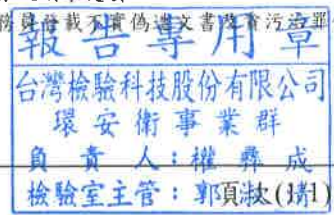 務員登載不實偽造文書及貪污治罪
報告專用章
台灣檢驗科技股份有限公司
環安衛事業群
負責人：權彝成
檢驗室主管：郭淑清
頁次(1-1)